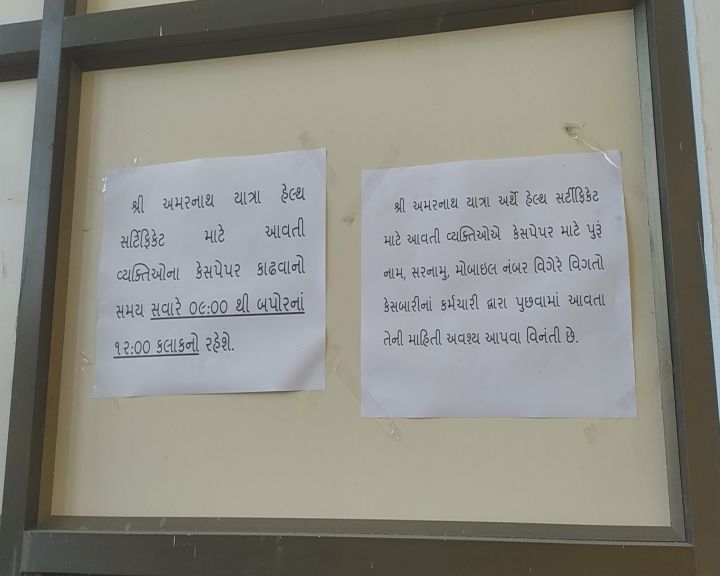 શ્રી અમરનાથ યાત્રા હેલ્થ
સર્ટિફિકેટ માટે આવતી
વ્યક્તિઓના કેસપેપર કાઢવાનો
સમય સવારે ૦૯:૦૦ થી બપોરનાં
૧૨:૦૦ કલાકનો રહેશે.
શ્રી અમરનાથ યાત્રા અર્થે હેલ્થ સર્ટીફિકેટ
માટે આવતી વ્યક્તિઓએ કેસપેપર માટે પુરૂં
નામ, સરનામુ, મોબાઇલ નંબર વિગેરે વિગતો
કેસબારીનાં કર્મચારી દ્વારા પુછવામાં આવતા
તેની માહિતી અવશ્ય આપવા વિનંતી છે.